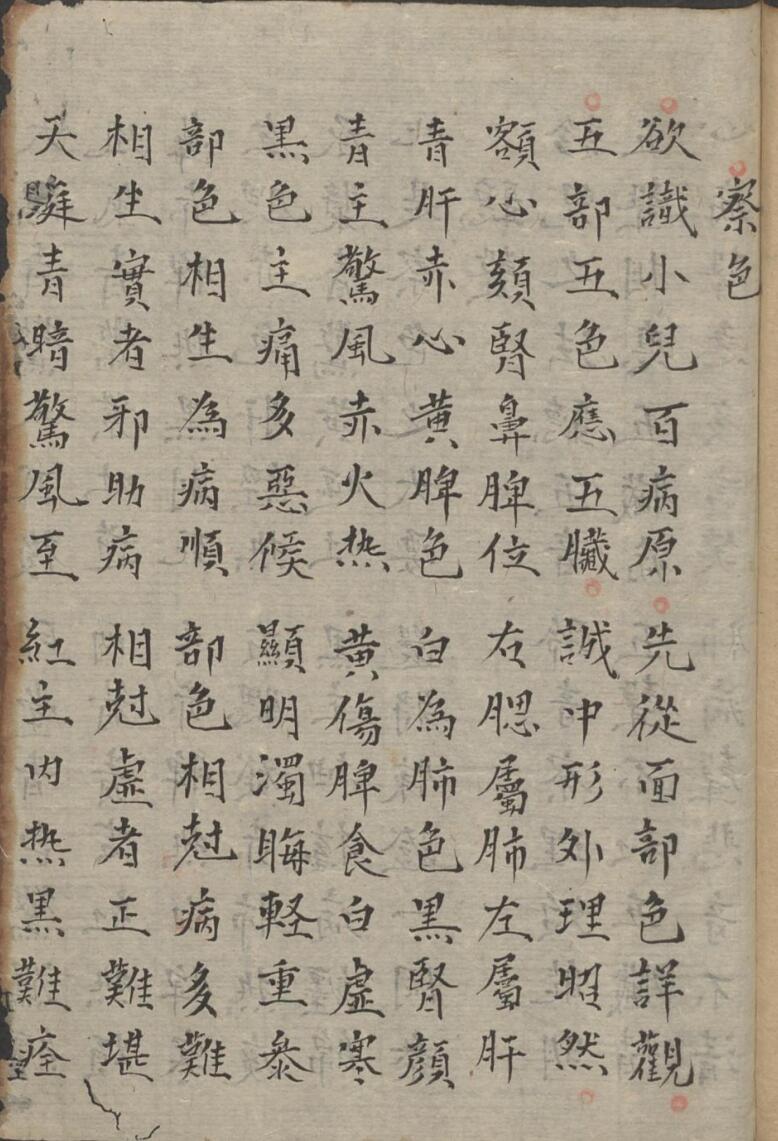 察色
欲識小兒百病原先從面部色詳觀
五部五色應五臟誠中形外理昭然
額心頦腎鼻脾位右腮屬肺左屬肝
青肝赤心黄脾色白為肺色黑腎顔
青主驚風赤火热黄傷脾食白虛寒
黒色主痛多惡候顯明濁晦軽重叅
部色相生為病順部色相尅病多難
相生實者邪助病相尅虛者正難堪
天庭青暗驚風至紅主内热黒難痊